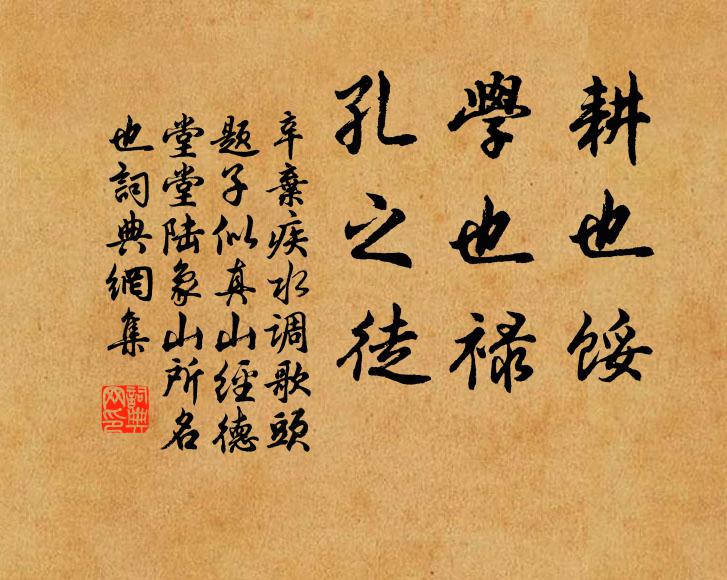 耕也餒
學也禄
孔之徒
辛棄疾水调歌頭
题子似真山經德
堂堂陆象山所名
也詞典網集
詞典网印